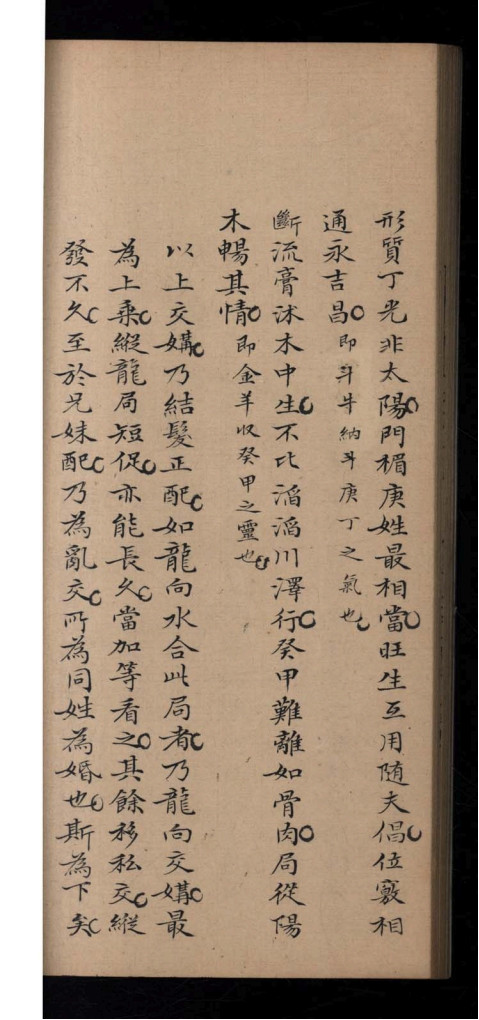 形質丁光非太陽門楣庚姓最相當旺生互用随夫倡位竅相
通永吉昌即斗牛納丁庚丁之氣也
斷流膏沐木中生不比滔滔川澤行癸甲難離如骨肉局從陽
木暢其情即金羊收癸甲之靈也
以上交媾乃結髮正配如龍向水合此局者乃龍向交媾最
為上乘縱龍局短促亦能長久當加等看之其餘移私交縱
發不久至於兄妹配乃為亂交所為同姓為婚也斯為下矣